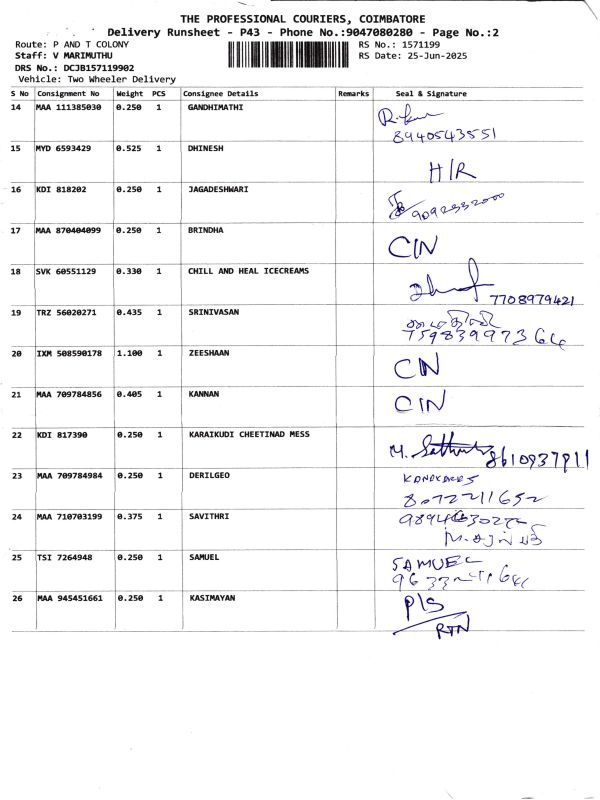 THE PROFESSIONAL COURIERS, COIMBATORE
Delivery Runsheet - P43 - Phone No.:9047080280 - Page No.:2
Route: P AND T COLONY
RS No.: 1571199
Staff: V MARIMUTHU
RS Date: 25-Jun-2025
DRS No.: DCJB157119902
Vehicle: Two Wheeler Delivery
S No Consignment No Weight PCS Consignee Details Remarks Seal & Signature
14 MAA 111385030 0.250 1 GANDHIMATHI
8940543551
15 MYD 6593429 0.525 1 DHINESH
H/R
16 KDI 818202 0.250 1 JAGADESHWARI
17 MAA 870404099 0.250 1 BRINDHA
CIN
18 SVK 60551129 0.330 1 CHILL AND HEAL ICECREAMS
7708979421
19 TRZ 56020271 0.435 1 SRINIVASAN
20 IXM 508590178 1.100 1 ZEESHAAN
CIN
21 MAA 709784856 0.405 1 KANNAN
CIN
22 KDI 817390 0.250 1 KARAIKUDI CHEETINAD MESS
23 MAA 709784984 0.250 1 DERILGEO
8072211652
24 MAA 710703199 0.375 1 SAVITHRI
25 TSI 7264948 0.250 1 SAMUEL
SAMUEL
26 MAA 945451661 0.250 1 KASIMAYAN
P/S
RTN